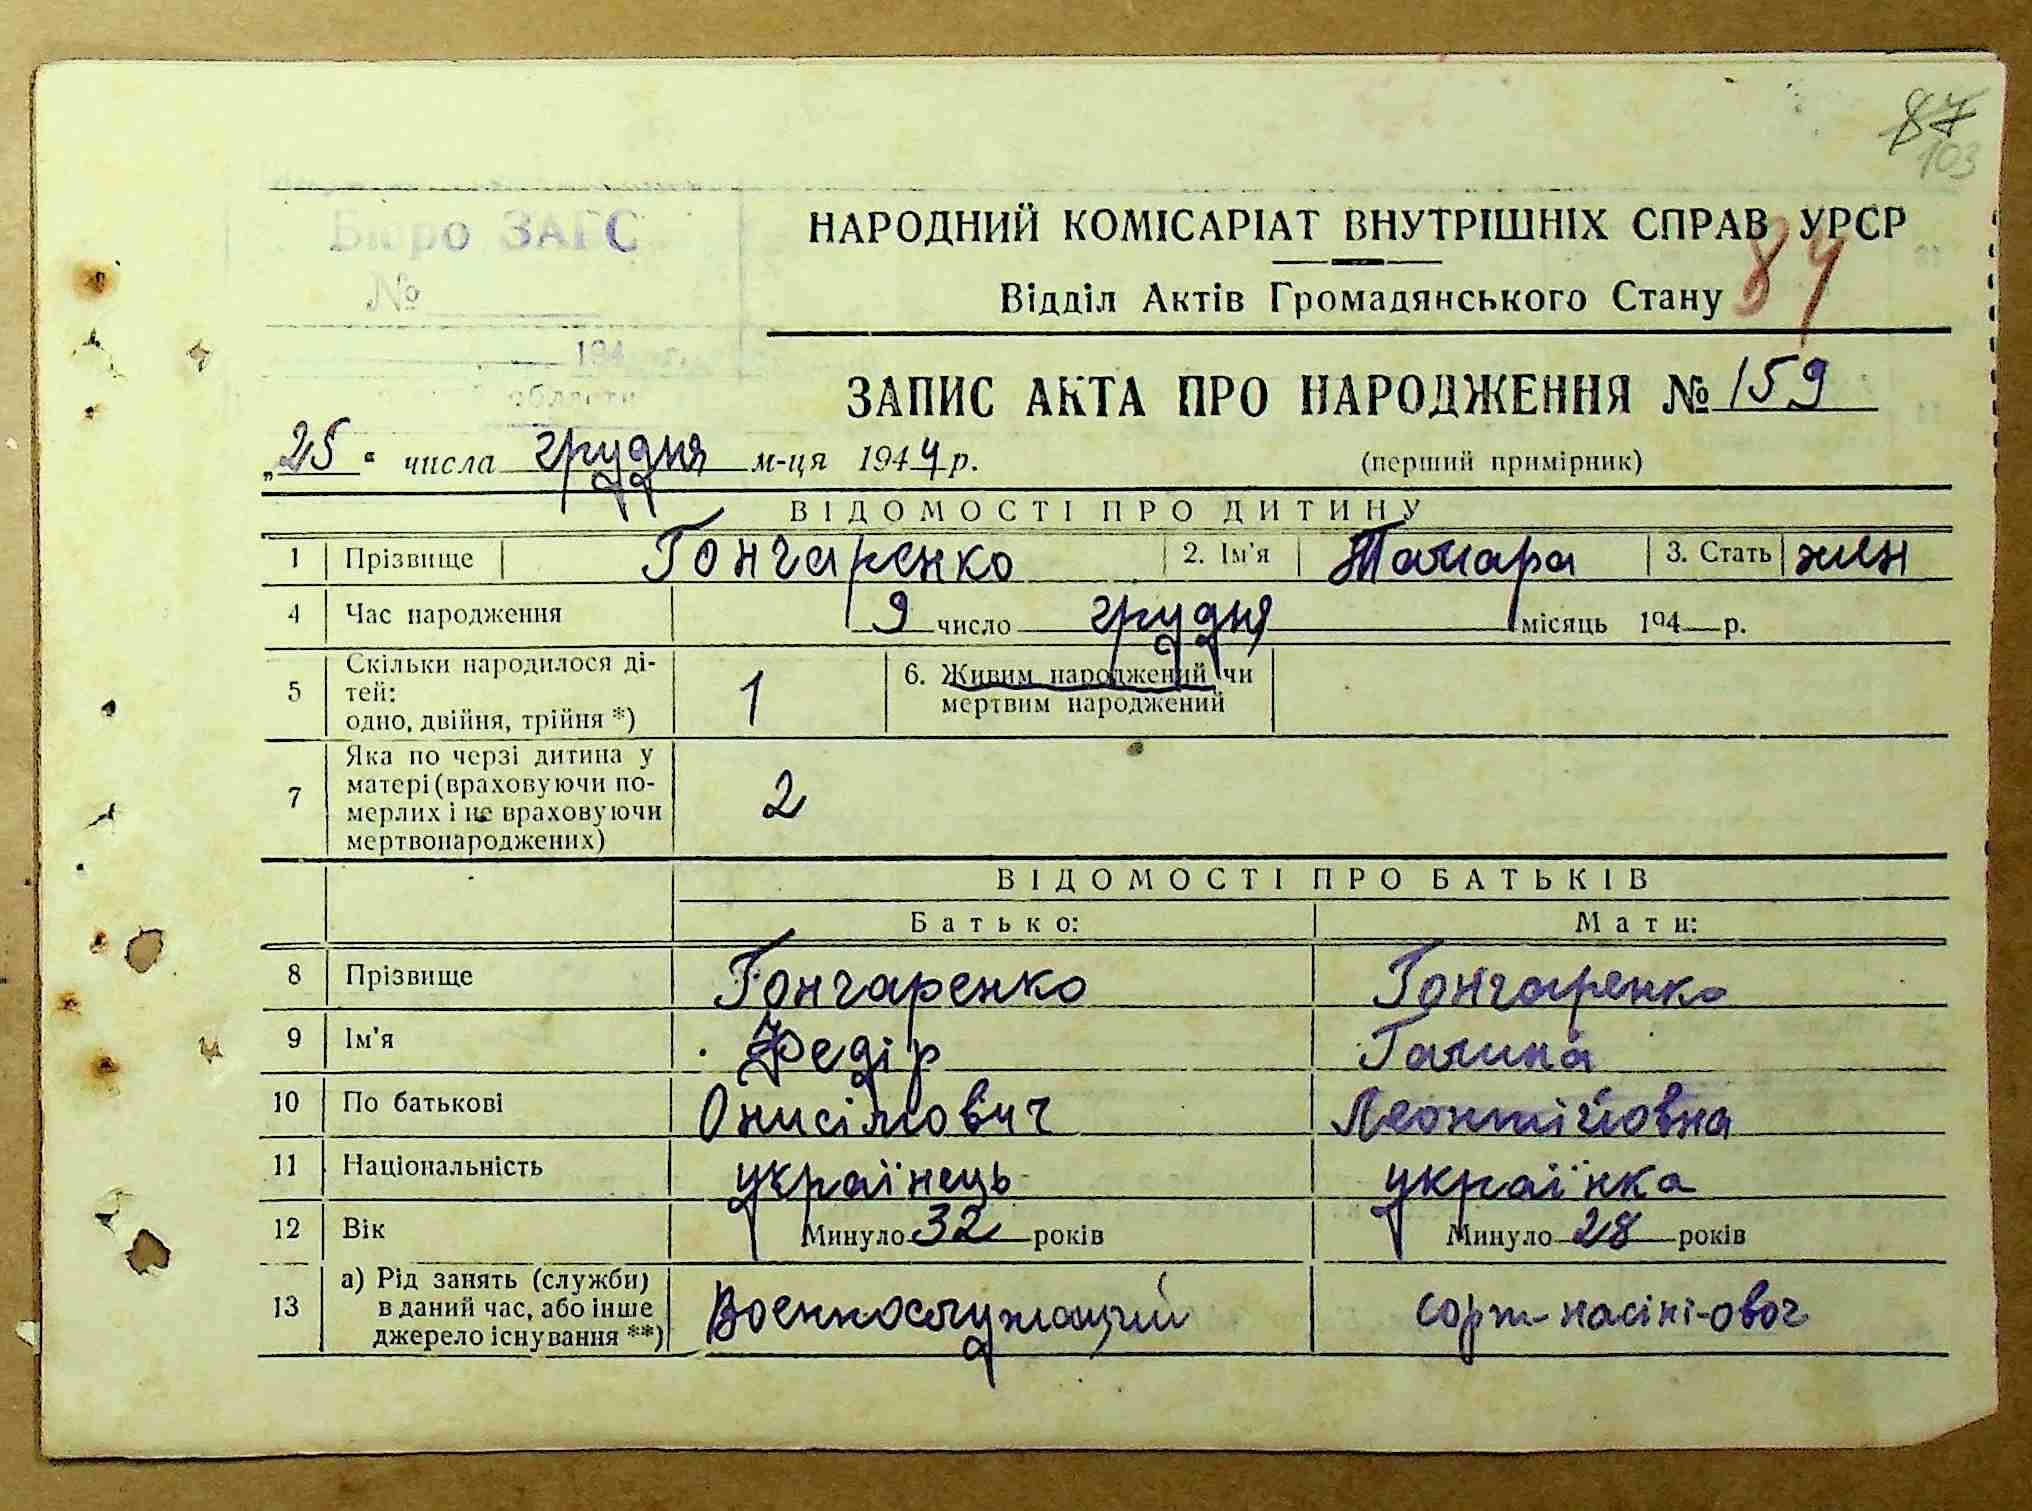 87
103
Бюро ЗАГС
№
194 г.
области
НАРОДНИЙ КОМІСАРІАТ ВНУТРІШНІХ СПРАВ УРСР
84
Відділ Актів Громадянського Стану
ЗАПИС АКТА ПРО НАРОДЖЕННЯ № 159
„25“ числа грудня м-ця 1944 р.
(перший примірник)
ВІДОМОСТІ ПРО ДИТИНУ
1 Прізвище Гончаренко 2. Ім'я Тамара 3. Стать жін
4 Час народження 9 число грудня місяць 194 р.
5 Скільки народилося ді-
тей:
одно, двійня, трійня *) 1
6. Живим народжений чи
мертвим народжений
7 Яка по черзі дитина у
матері (враховуючи по-
мерлих і не враховуючи
мертвонароджених) 2
ВІДОМОСТІ ПРО БАТЬКІВ
Батько: Мати:
8 Прізвище Гончаренко Гончаренко
9 Ім'я Федір Галина
10 По батькові Онисімович Леонтійовна
11 Національність українець українка
12 Вік Минуло 32 років Минуло 28 років
13 а) Рід занять (служби)
в даний час, або інше
джерело існування **) Военнослужащий сорт-насіні-овоч